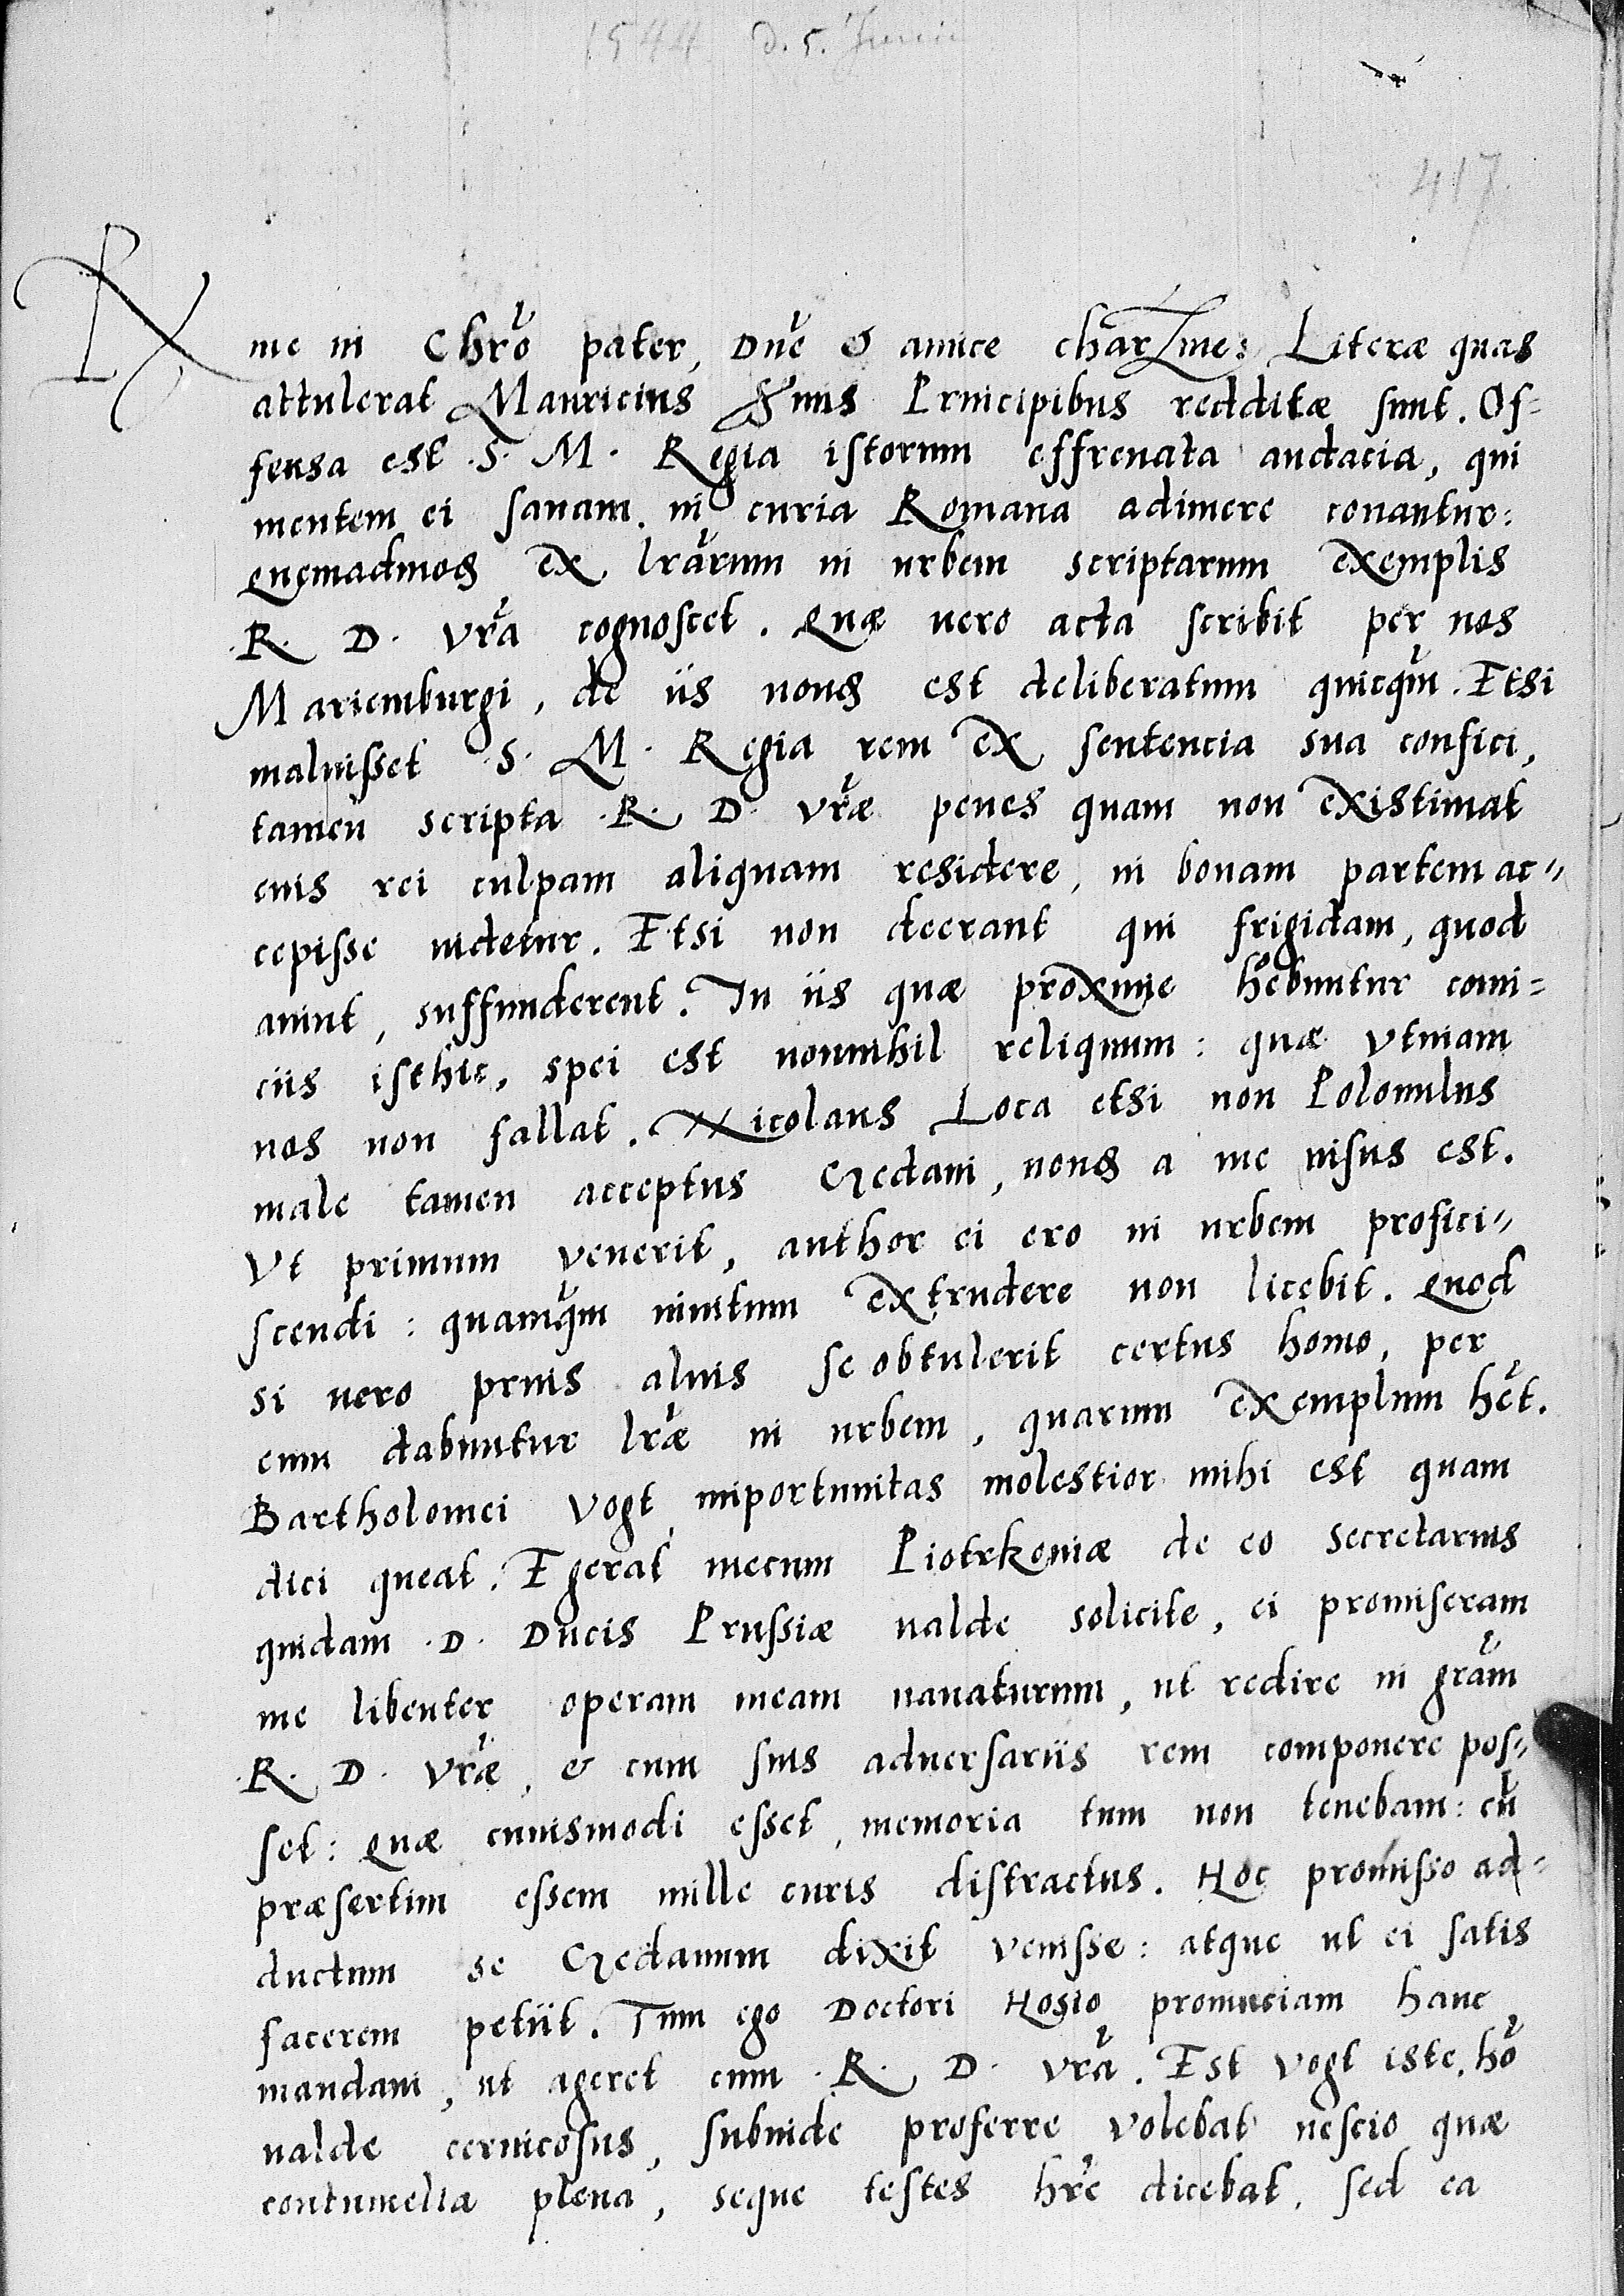 1544 d. 5. Junii
417
R me in Chr̃o pater, Dñe & amice char̃ıme: Literæ quas
attulerat Mauricius suis Principibus redditæ sunt. Of=
fensa est .S. M. Regia istorum effrenata audacia, qui
mentem ei sanam in curia Romana adimere conantur:
quemadmoꝗ ex lr̃arum in urbem scriptarum exemplis
.R. D. vr̃a cognoscet. Quæ uero acta scribit per nos
Mariemburgi, de iis nonꝗ est deliberatum quicꝗ̃m. Etsi
maluisset .S. M. Regia rem ex sentencia sua confici,
tamen scripta .R. D. vr̃æ penes quam non existimat
eius rei culpam aliquam residere, in bonam partem ac=
cepisse uidetur. Etsi non deerant qui frigidam, quod
aiunt, suffunderent. In iis quæ proxime hẽbuntur comi=
ciis isthic, spei est nonnihil reliquum: quæ vtinam
nos non fallat. Nicolaus Loca etsi non Polonulus
male tamen acceptus Gedani, nonꝗ a me uisus est.
Vt primum venerit, author ei ero in urbem profici=
scendi: quamꝗ̃m inuitum extrudere non licebit. Quod
si uero prius alius se obtulerit certus homo, per
eum dabuntur lr̃æ in urbem, quarum exemplum hẽt.
Bartholomei Vogt importunitas molestior mihi est quam
dici queat. Egerat mecum Piotrkouiæ de eo secretarius
quidam .D. Ducis Prussiæ ualde solicite, ei promiseram
me libenter operam meam nauaturum, ut redire in gr̃am
.R. D. vr̃æ, & cum suis aduersariis rem componere pos=
set: quæ cuiusmodi esset, memoria tum non tenebam: cũ
præsertim essem mille curis distractus. Hoc promisso ad=
ductum se Gedanum dixit venisse: atque ut ei satis
facerem petiit. Tum ego Doctori Hosio prouinciam hanc
mandaui, ut ageret cum .R. D. vr̃a. Est Vogt iste hõ
ualde ceruicosus, subinde proferre volebat nescio quæ
contumelia plena, seque testes hr̃e dicebat, sed ea